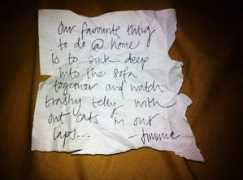 Our favourite thing
to do @ home
is to sink deep
into the sofa
together and watch
trashy telly with
our cats in our
laps...